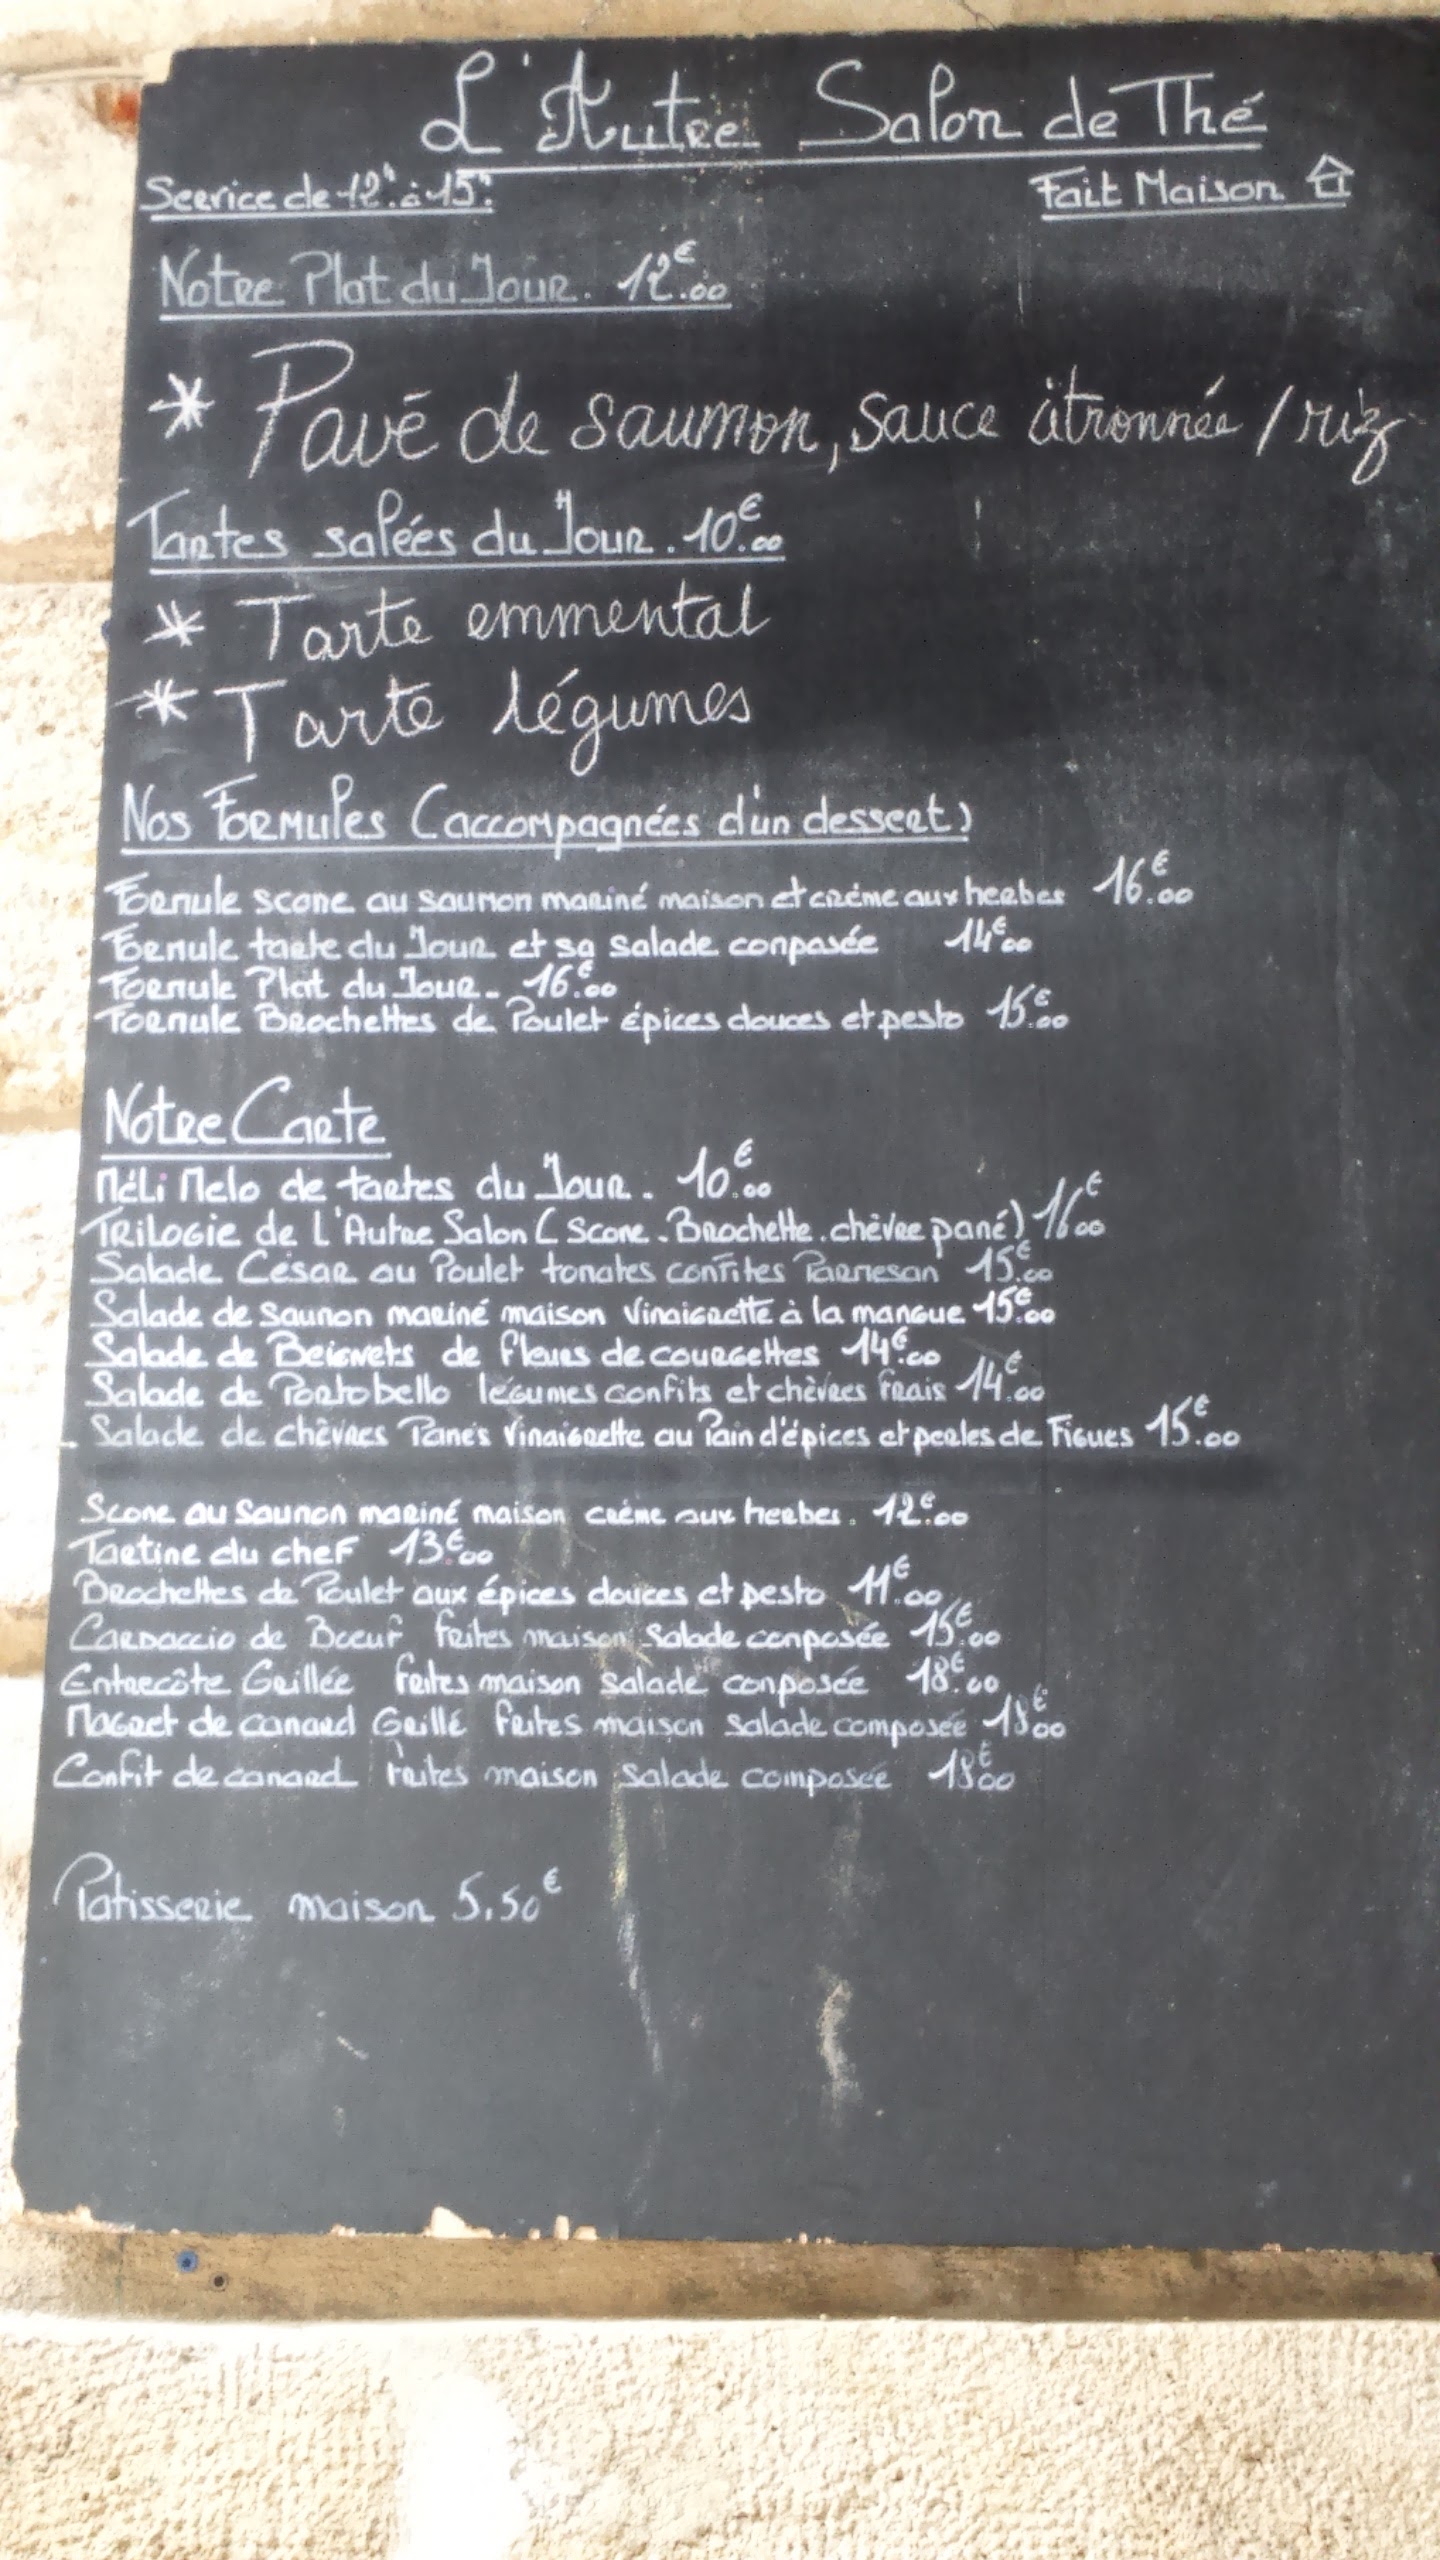 L'Autre Salon de Thé
Service de 12h à 15h
Fait Maison
Notre Plat du Jour. 12€.00
* Pavé de saumon, sauce citronnée / riz
Tartes salées du Jour. 10€.00
* Tarte emmental
* Tarte légumes
Nos Formules (accompagnées d'un dessert)
Formule scone au saumon mariné maison et crème aux herbes 16€.00
Formule tarte du Jour et sa salade composée 14€.00
Formule Plat du Jour. 16€.00
Formule Brochettes de Poulet épices douces et pesto 15€.00
Notre Carte
Méli Melo de tartes du Jour. 10€.00
Trilogie de L'Autre Salon (Scone. Brochette. chèvre pané) 16€00
Salade César au Poulet tomates confites Parmesan 15€.00
Salade de saumon mariné maison Vinaigrette à la mangue 15€.00
Salade de Beignets de fleurs de courgettes 14€.00
Salade de Portobello légumes confits et chèvres frais 14€.00
Salade de chèvres Panés Vinaigrette au Pain d'épices et perles de Figues 15€.00
Scone au Saumon mariné maison crème aux herbes. 12€.00
Tartine du chef 13€.00
Brochettes de Poulet aux épices douces et pesto 11€.00
Carpaccio de Boeuf frites maison salade composée 15€.00
Entrecôte Grillée frites maison salade composée 18€.00
Magret de canard Grillé frites maison salade composée 18€00
Confit de canard frites maison salade composée 18€00
Patisserie maison 5,50€